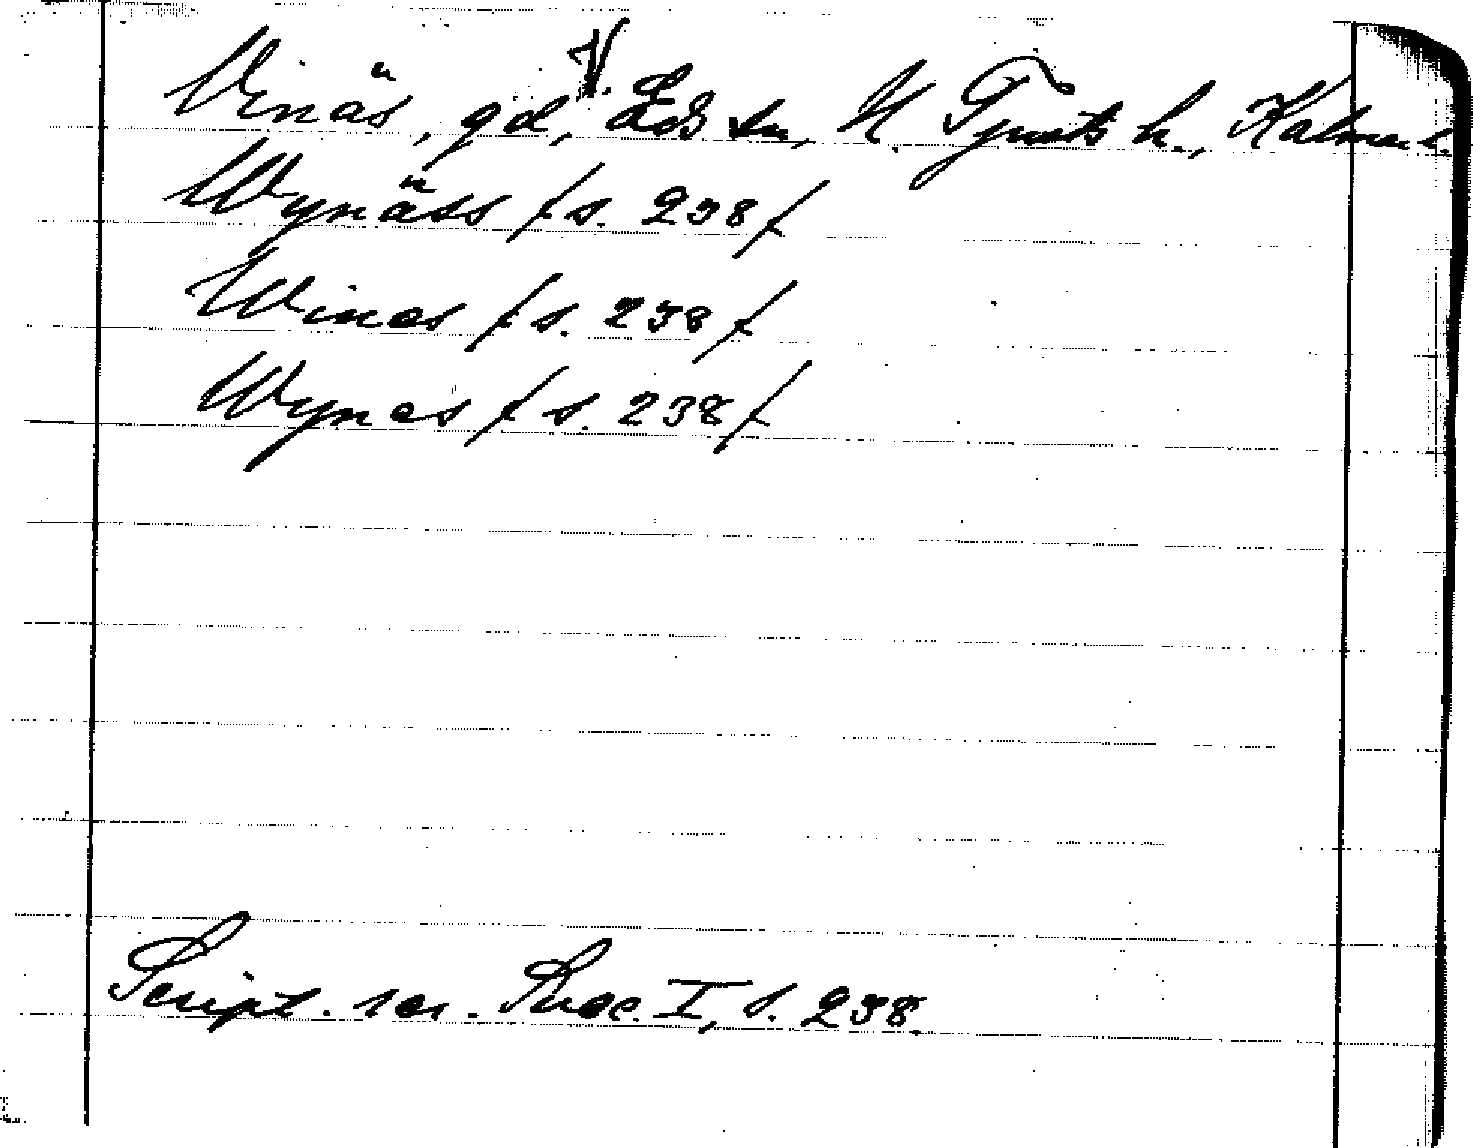 Vinäs, gd, V. Eds sn, N. Tjusts h., Kalmar l.
Wynäss /s. 238/
Wines /s. 238/
Wynes /s. 238/
Script. rer. Suec. I, s. 238.